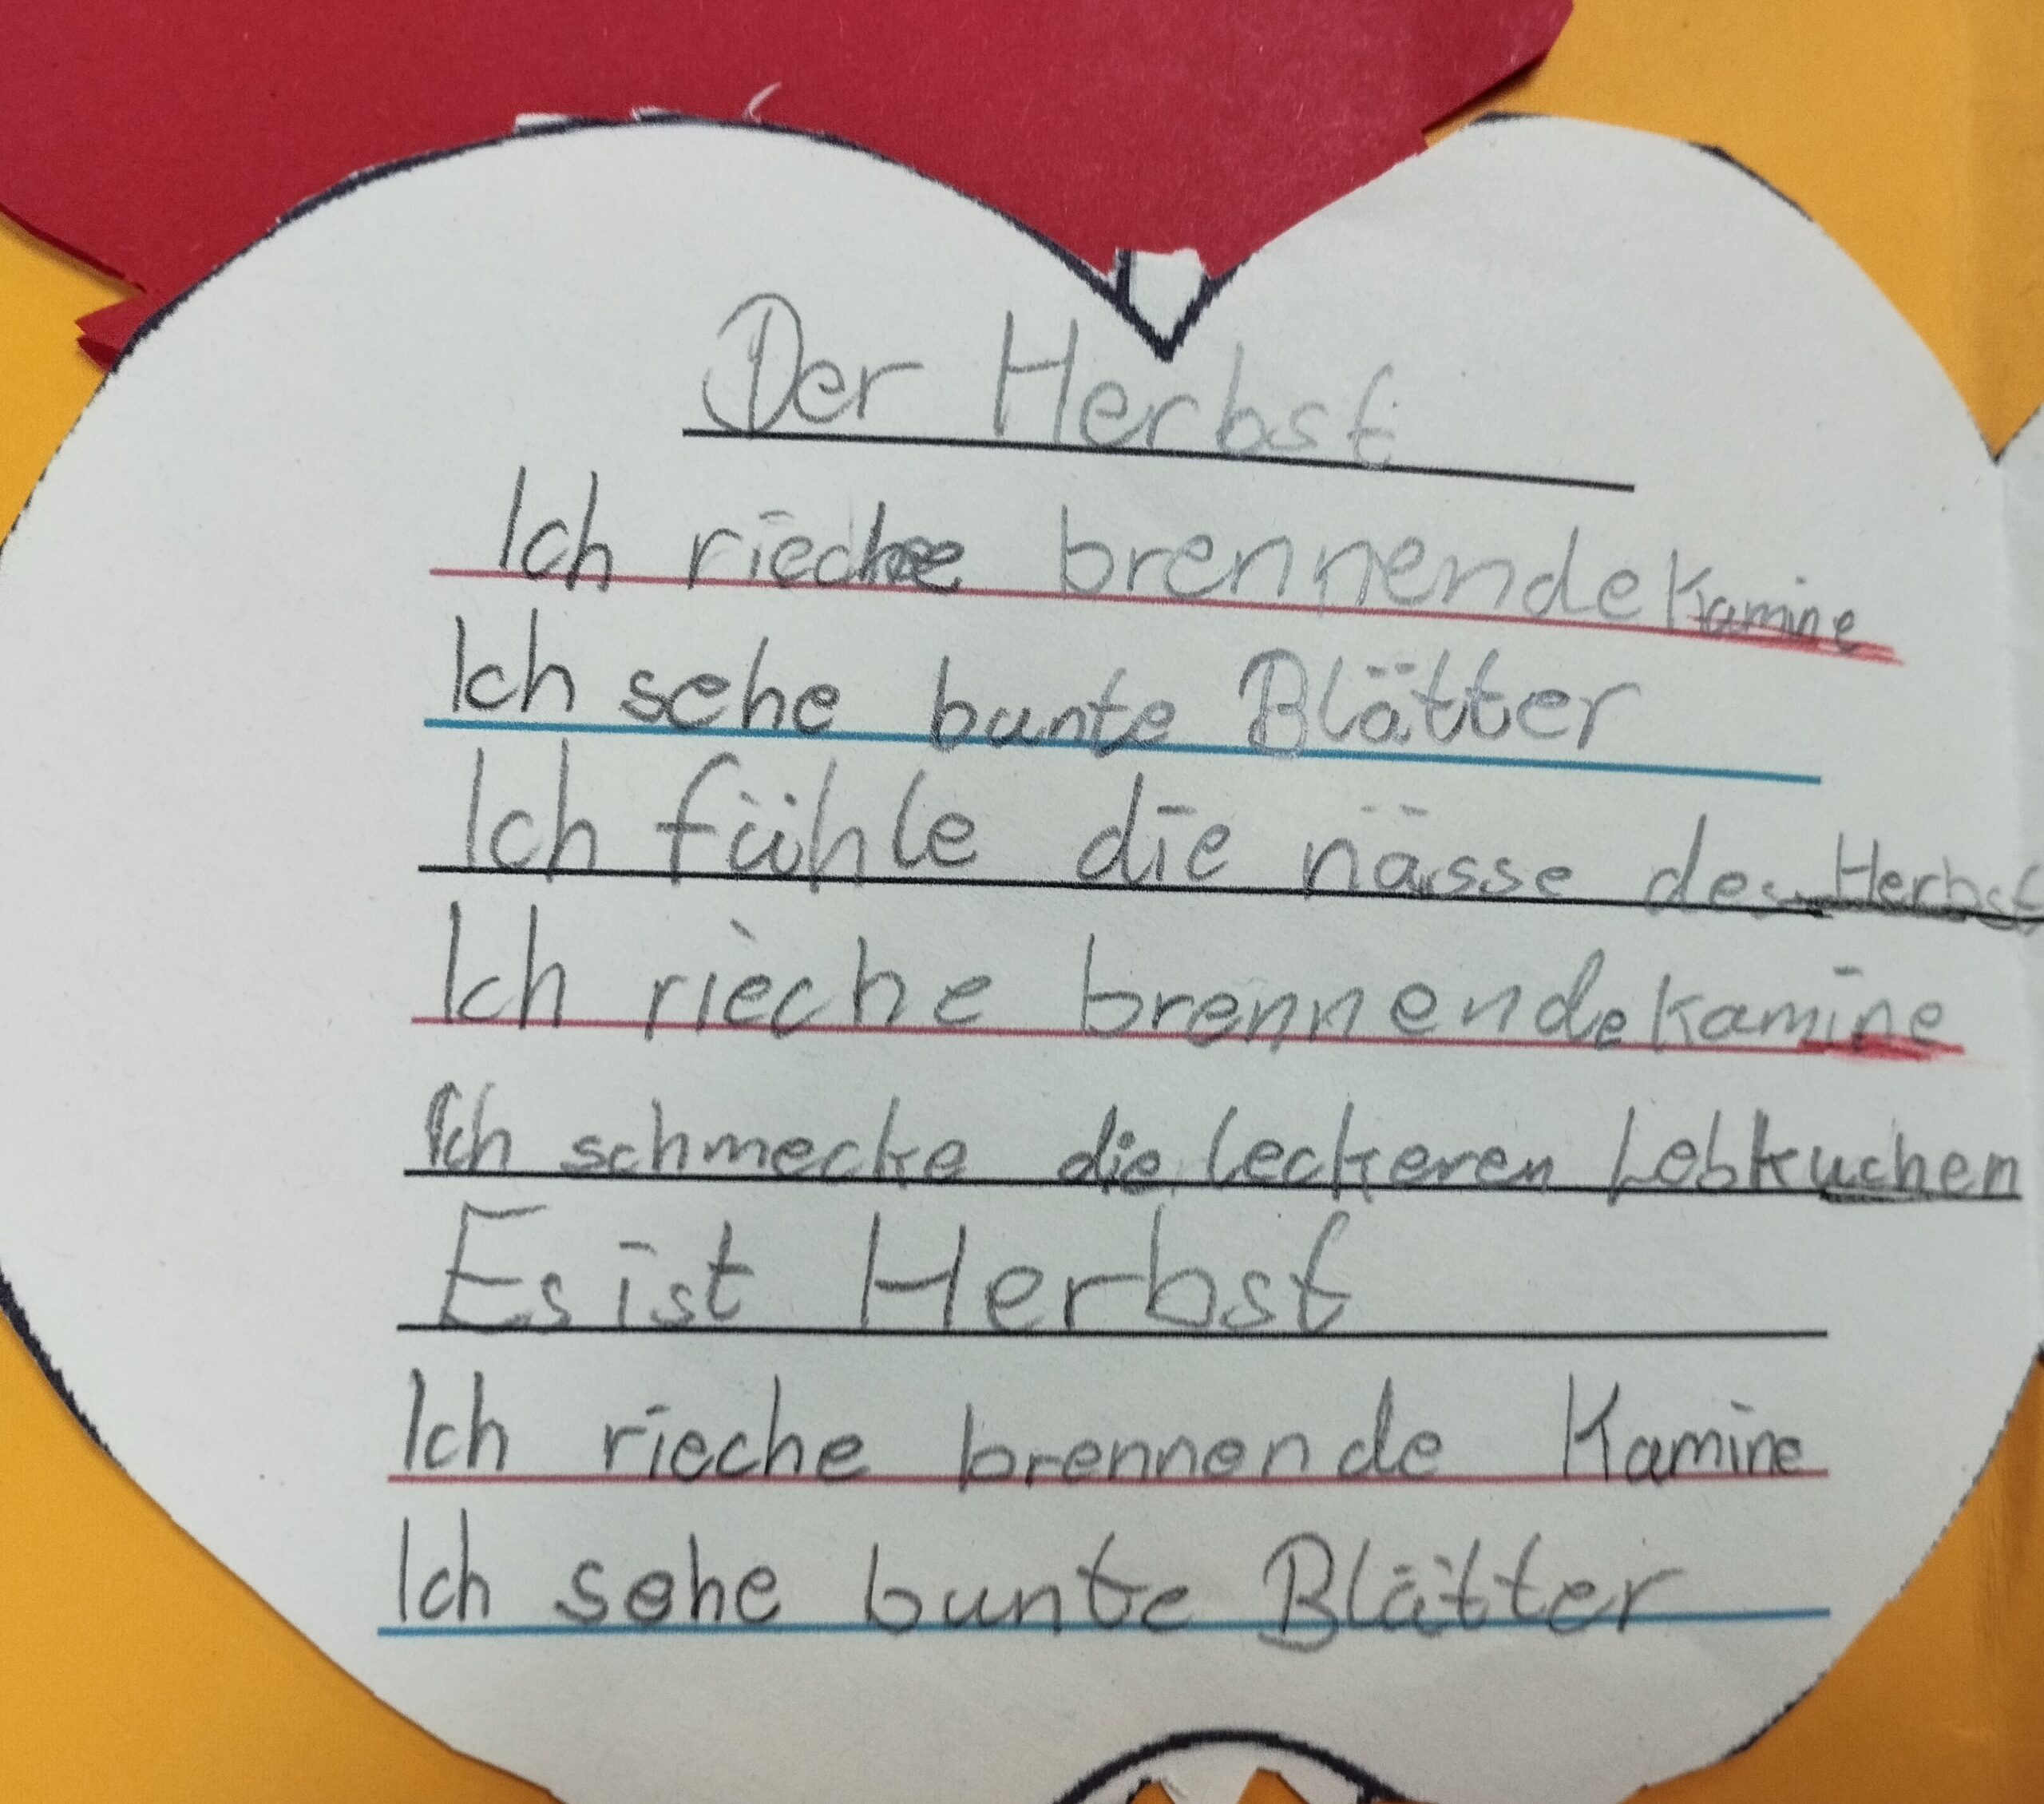 Der Herbst
Ich rieche brennende Kamine
Ich sehe bunte Blätter
Ich fühle die nässe des Herbst
Ich rieche brennende Kamine
Ich schmecke die leckeren Lebkuchen
Es ist Herbst
Ich rieche brennende Kamine
Ich sehe bunte Blätter